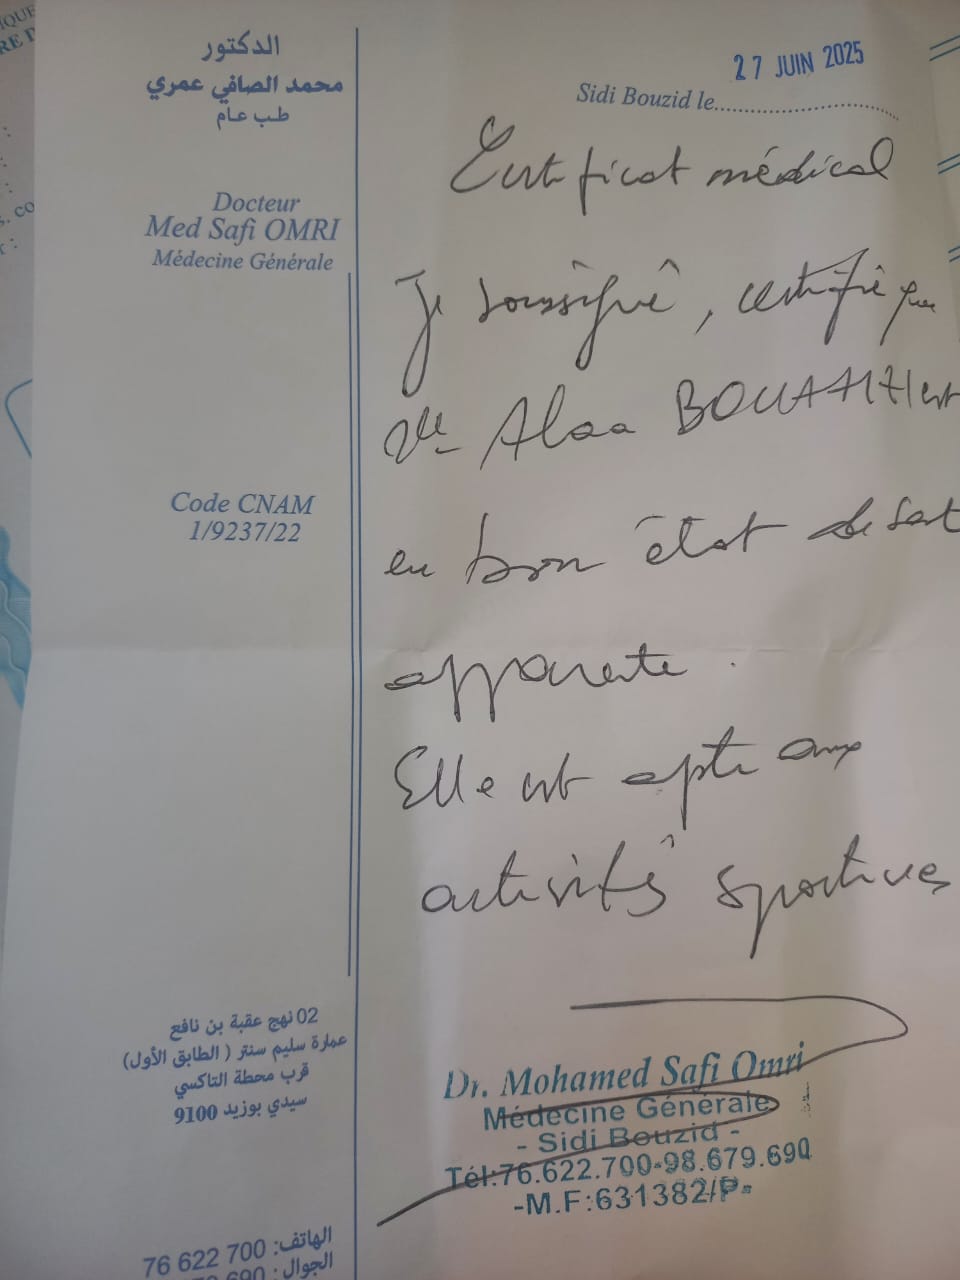 الدكتور
محمد الصافي عمري
طب عام
Docteur
Med Safi OMRI
Médecine Générale
Code CNAM
1/9237/22
27 JUIN 2025
Sidi Bouzid le
Certificat médical
Je soussigné, certifie que
Alaa est
en bon état de
apparente.
Elle est apte aux
activités sportives
Dr. Mohamed Safi Omri
Médecine Générale
- Sidi Bouzid -
Tél:76.622.700-98.679.690
-M.F:631382/P-
02 نهج عقبة بن نافع
عمارة سليم سنتر ( الطابق الأول)
قرب محطة التاكسي
سيدي بوزيد 9100
الهاتف: 700 622 76
الجوال: 690